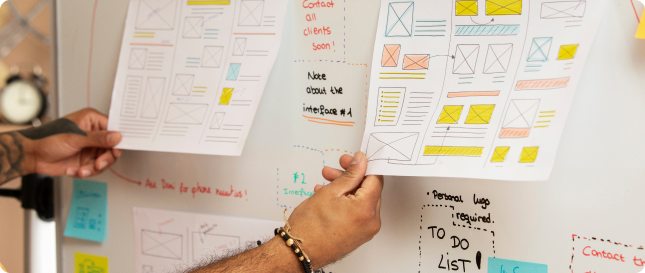 Contact
all
clients
soon!
Note
about the
interface #1
#2
Interface
Ask Dani for phone
• Personal logo
required.
TO DO
LIST
Contact